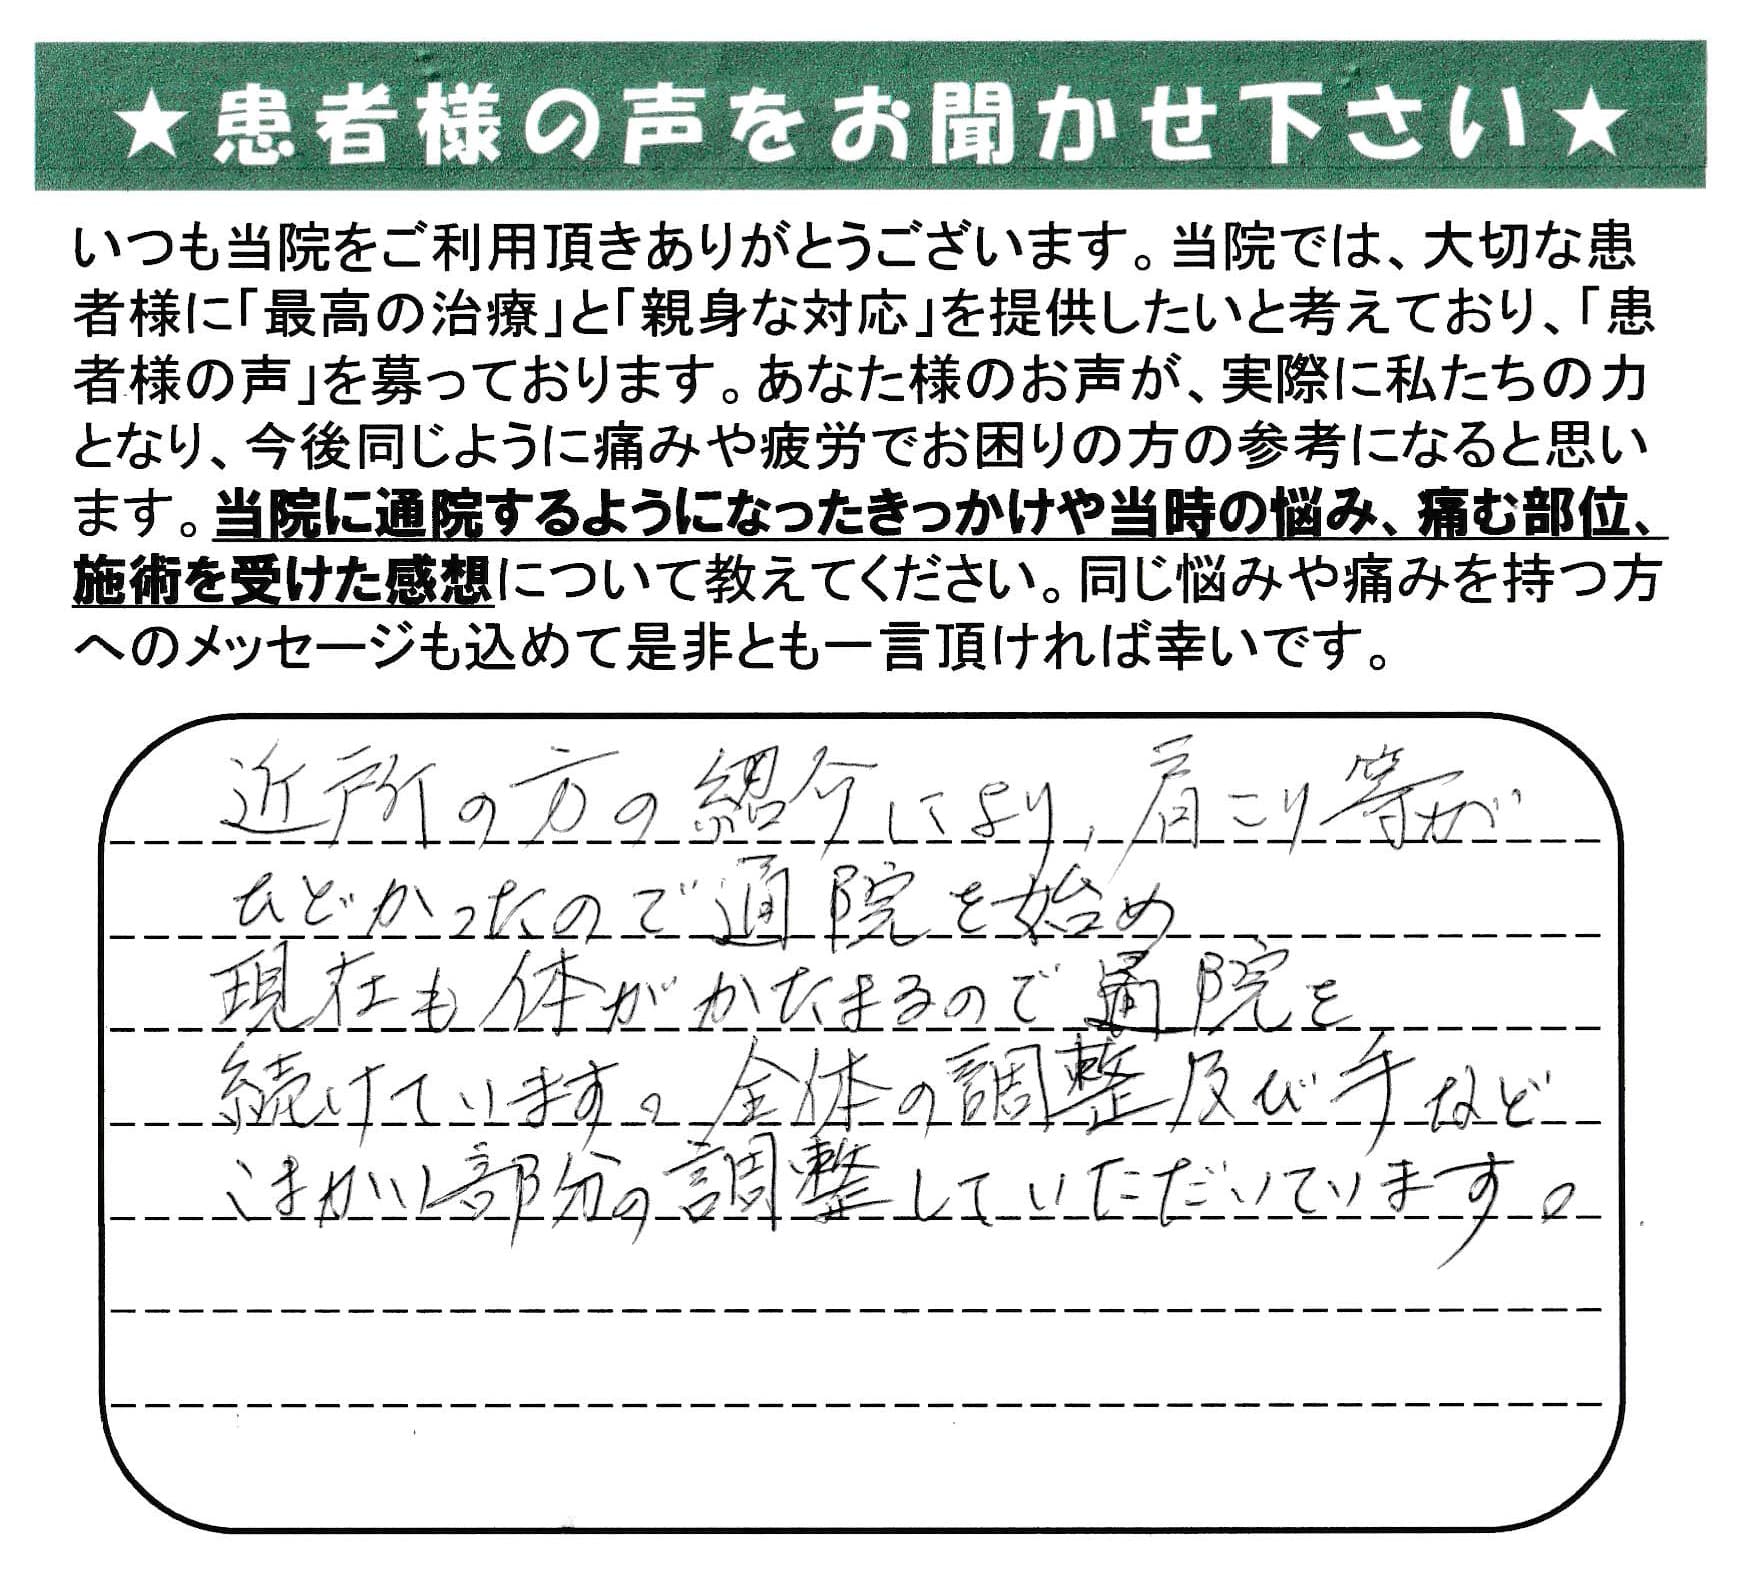 ★患者様の声をお聞かせ下さい★
いつも当院をご利用頂きありがとうございます。当院では、大切な患
者様に「最高の治療」と「親身な対応」を提供したいと考えており、「患
者様の声」を募っております。あなた様のお声が、実際に私たちの力
となり、今後同じように痛みや疲労でお困りの方の参考になると思い
ます。当院に通院するようになったきっかけや当時の悩み、痛む部位、
施術を受けた感想について教えてください。同じ悩みや痛みを持つ方
へのメッセージも込めて是非とも一言頂ければ幸いです。
近所の方の紹介により、肩こり等が
ひどかったので通院を始め
現在も体がかたまるので通院を
続けています。全体の調整及び手など
こまかい部分の調整していただいています。